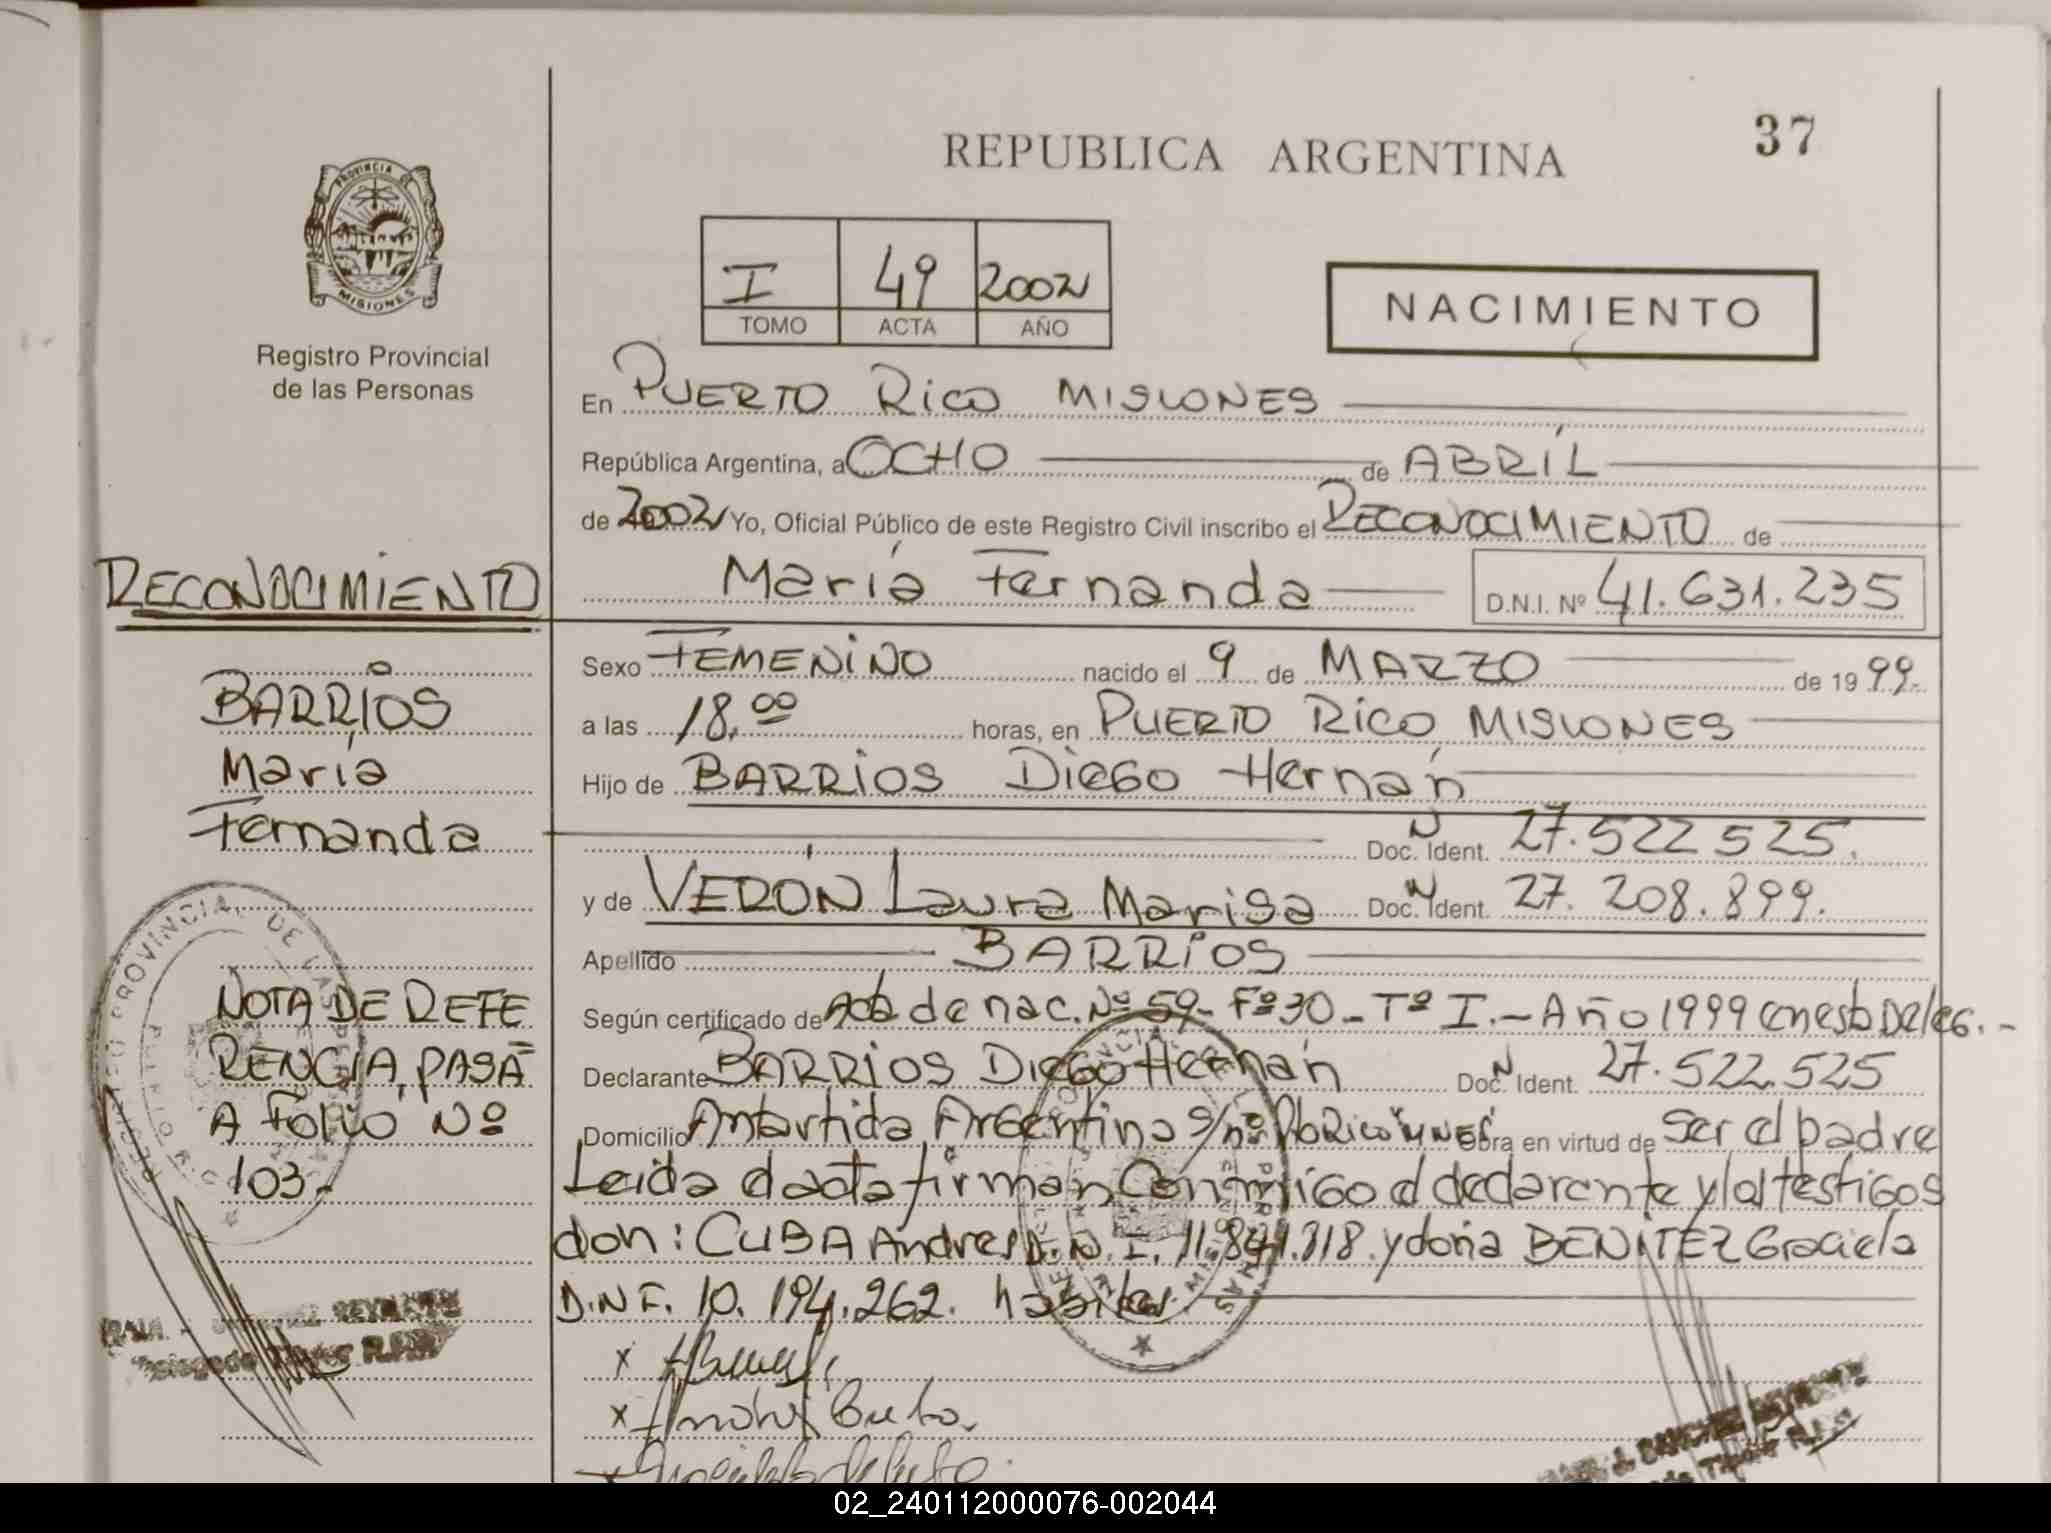 37
REPUBLICA ARGENTINA
PROVINCIA DE
MISIONES
Registro Provincial
de las Personas
I 49 2002
TOMO ACTA AÑO
NACIMIENTO
En PUERTO RICO MISIONES
República Argentina, a OCHO de ABRIL
de 2002 Yo, Oficial Público de este Registro Civil inscribo el RECONOCIMIENTO de
María Fernanda D.N.I. Nº 41.631.235
Sexo FEMENINO nacido el 9 de MARZO de 1999.-
a las 18,00 horas, en PUERTO RICO MISIONES
Hijo de BARRIOS DIEGO Hernán
Doc. N Ident. 27.522 525.
y de VERÓN Laura Marisa Doc. N Ident. 27.208.899.
Apellido BARRIOS
Según certificado de Acta de nac. Nº 59- Fº 30- Tº I.- Año 1999 en esta Deleg.-
Declarante BARRIOS DIEGO Hernán Doc. N Ident. 27.522.525
Domicilio Antartida Argentina s/nº Pto Rico Mnes Obra en virtud de ser el padre
Leida el acta firman Conmigo el declarante y los testigos
don: CUBA Andres D.N.I. 11.841.318. y doña BENITEZ Graciela
D.N.I. 10.194.262. habiles
RECONOCIMIENTO
BARRIOS
María
Fernanda
NOTA DE REFE
RENCIA, PASA
A FOLIO Nº
103.-
02_240112000076-002044